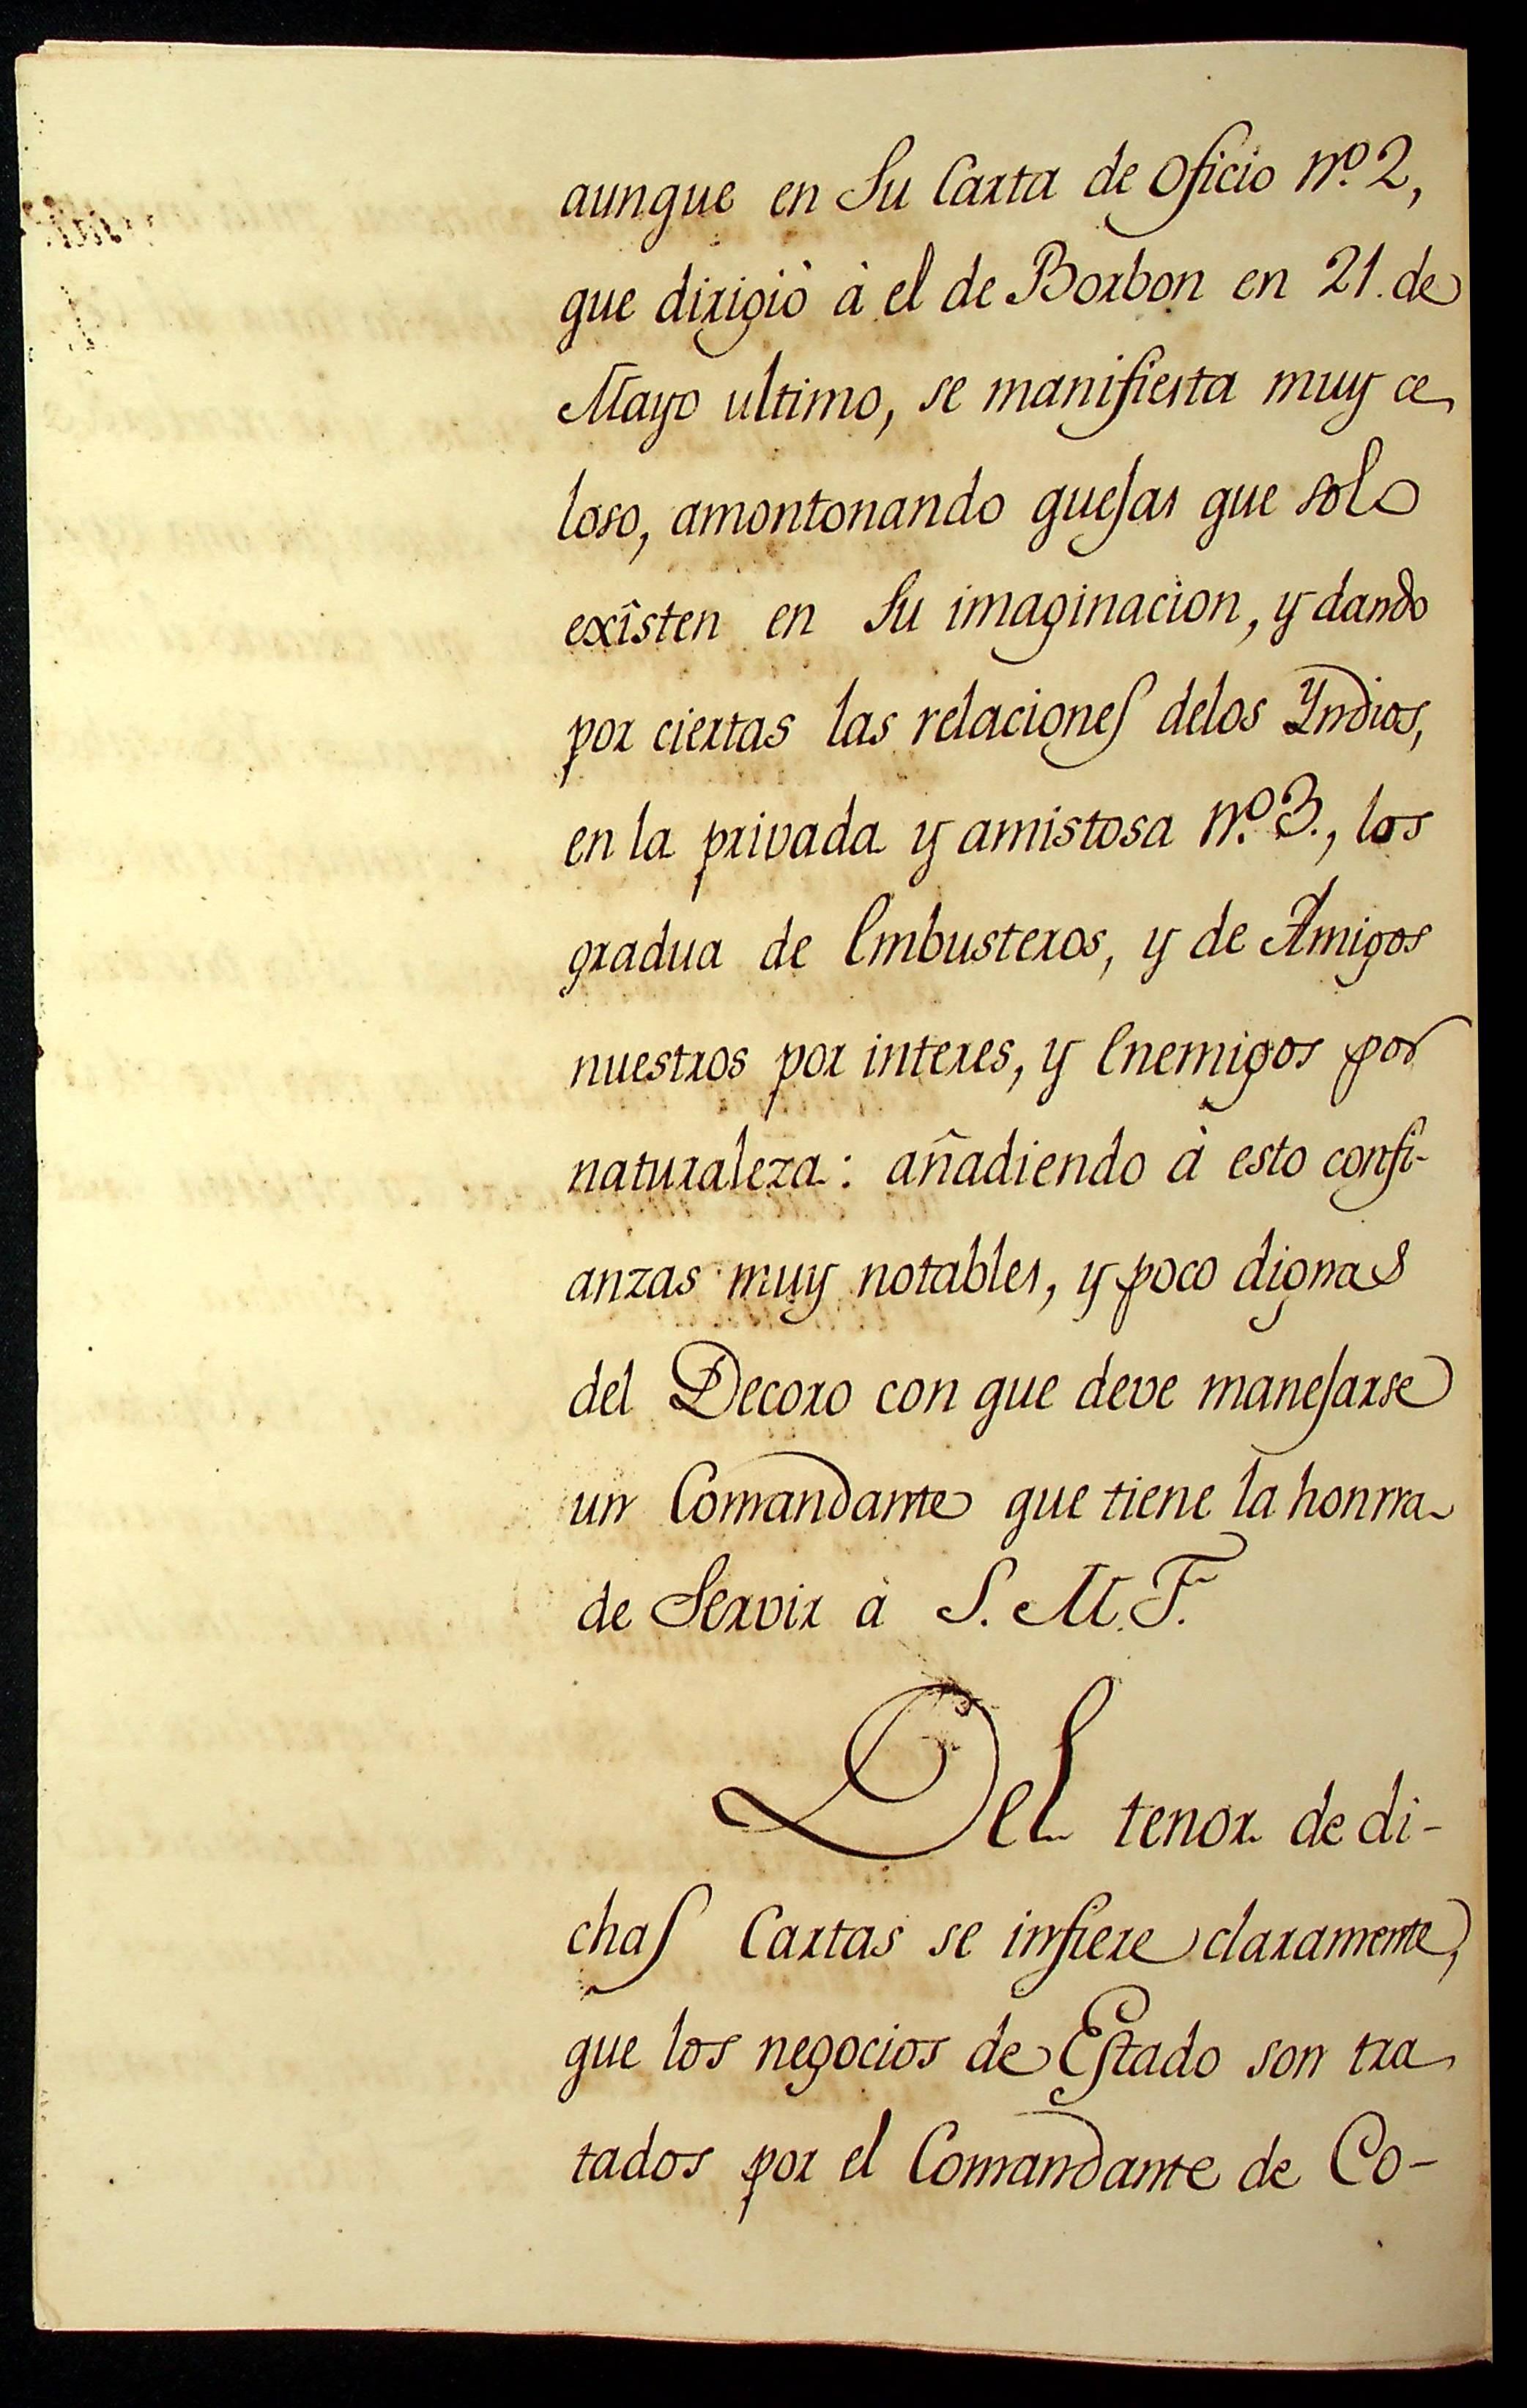 aunque en su Carta de Oficio nº. 2,
que dirigiò à el de Borbon en 21. de
Mayo ultimo, se manifiesta muy ce
loso, amontonando quejas que solo
exîsten en su imaginacion, y dando
por ciertas las relaciones delos Yndios,
en la privada y amistosa nº. 3., los
gradua de Embusteros, y de Amigos
nuestros por interes, y Enemigos por
naturaleza: añadiendo à esto confi-
anzas muy notables, y poco dignas
del Decoro con que deve manejarse
un Comandante que tiene la honrra
de Servir à S. M. F.
Del tenor de di-
chas Cartas se infiere claramente,
que los negocios de Estado son tra
tados por el Comandante de Co-